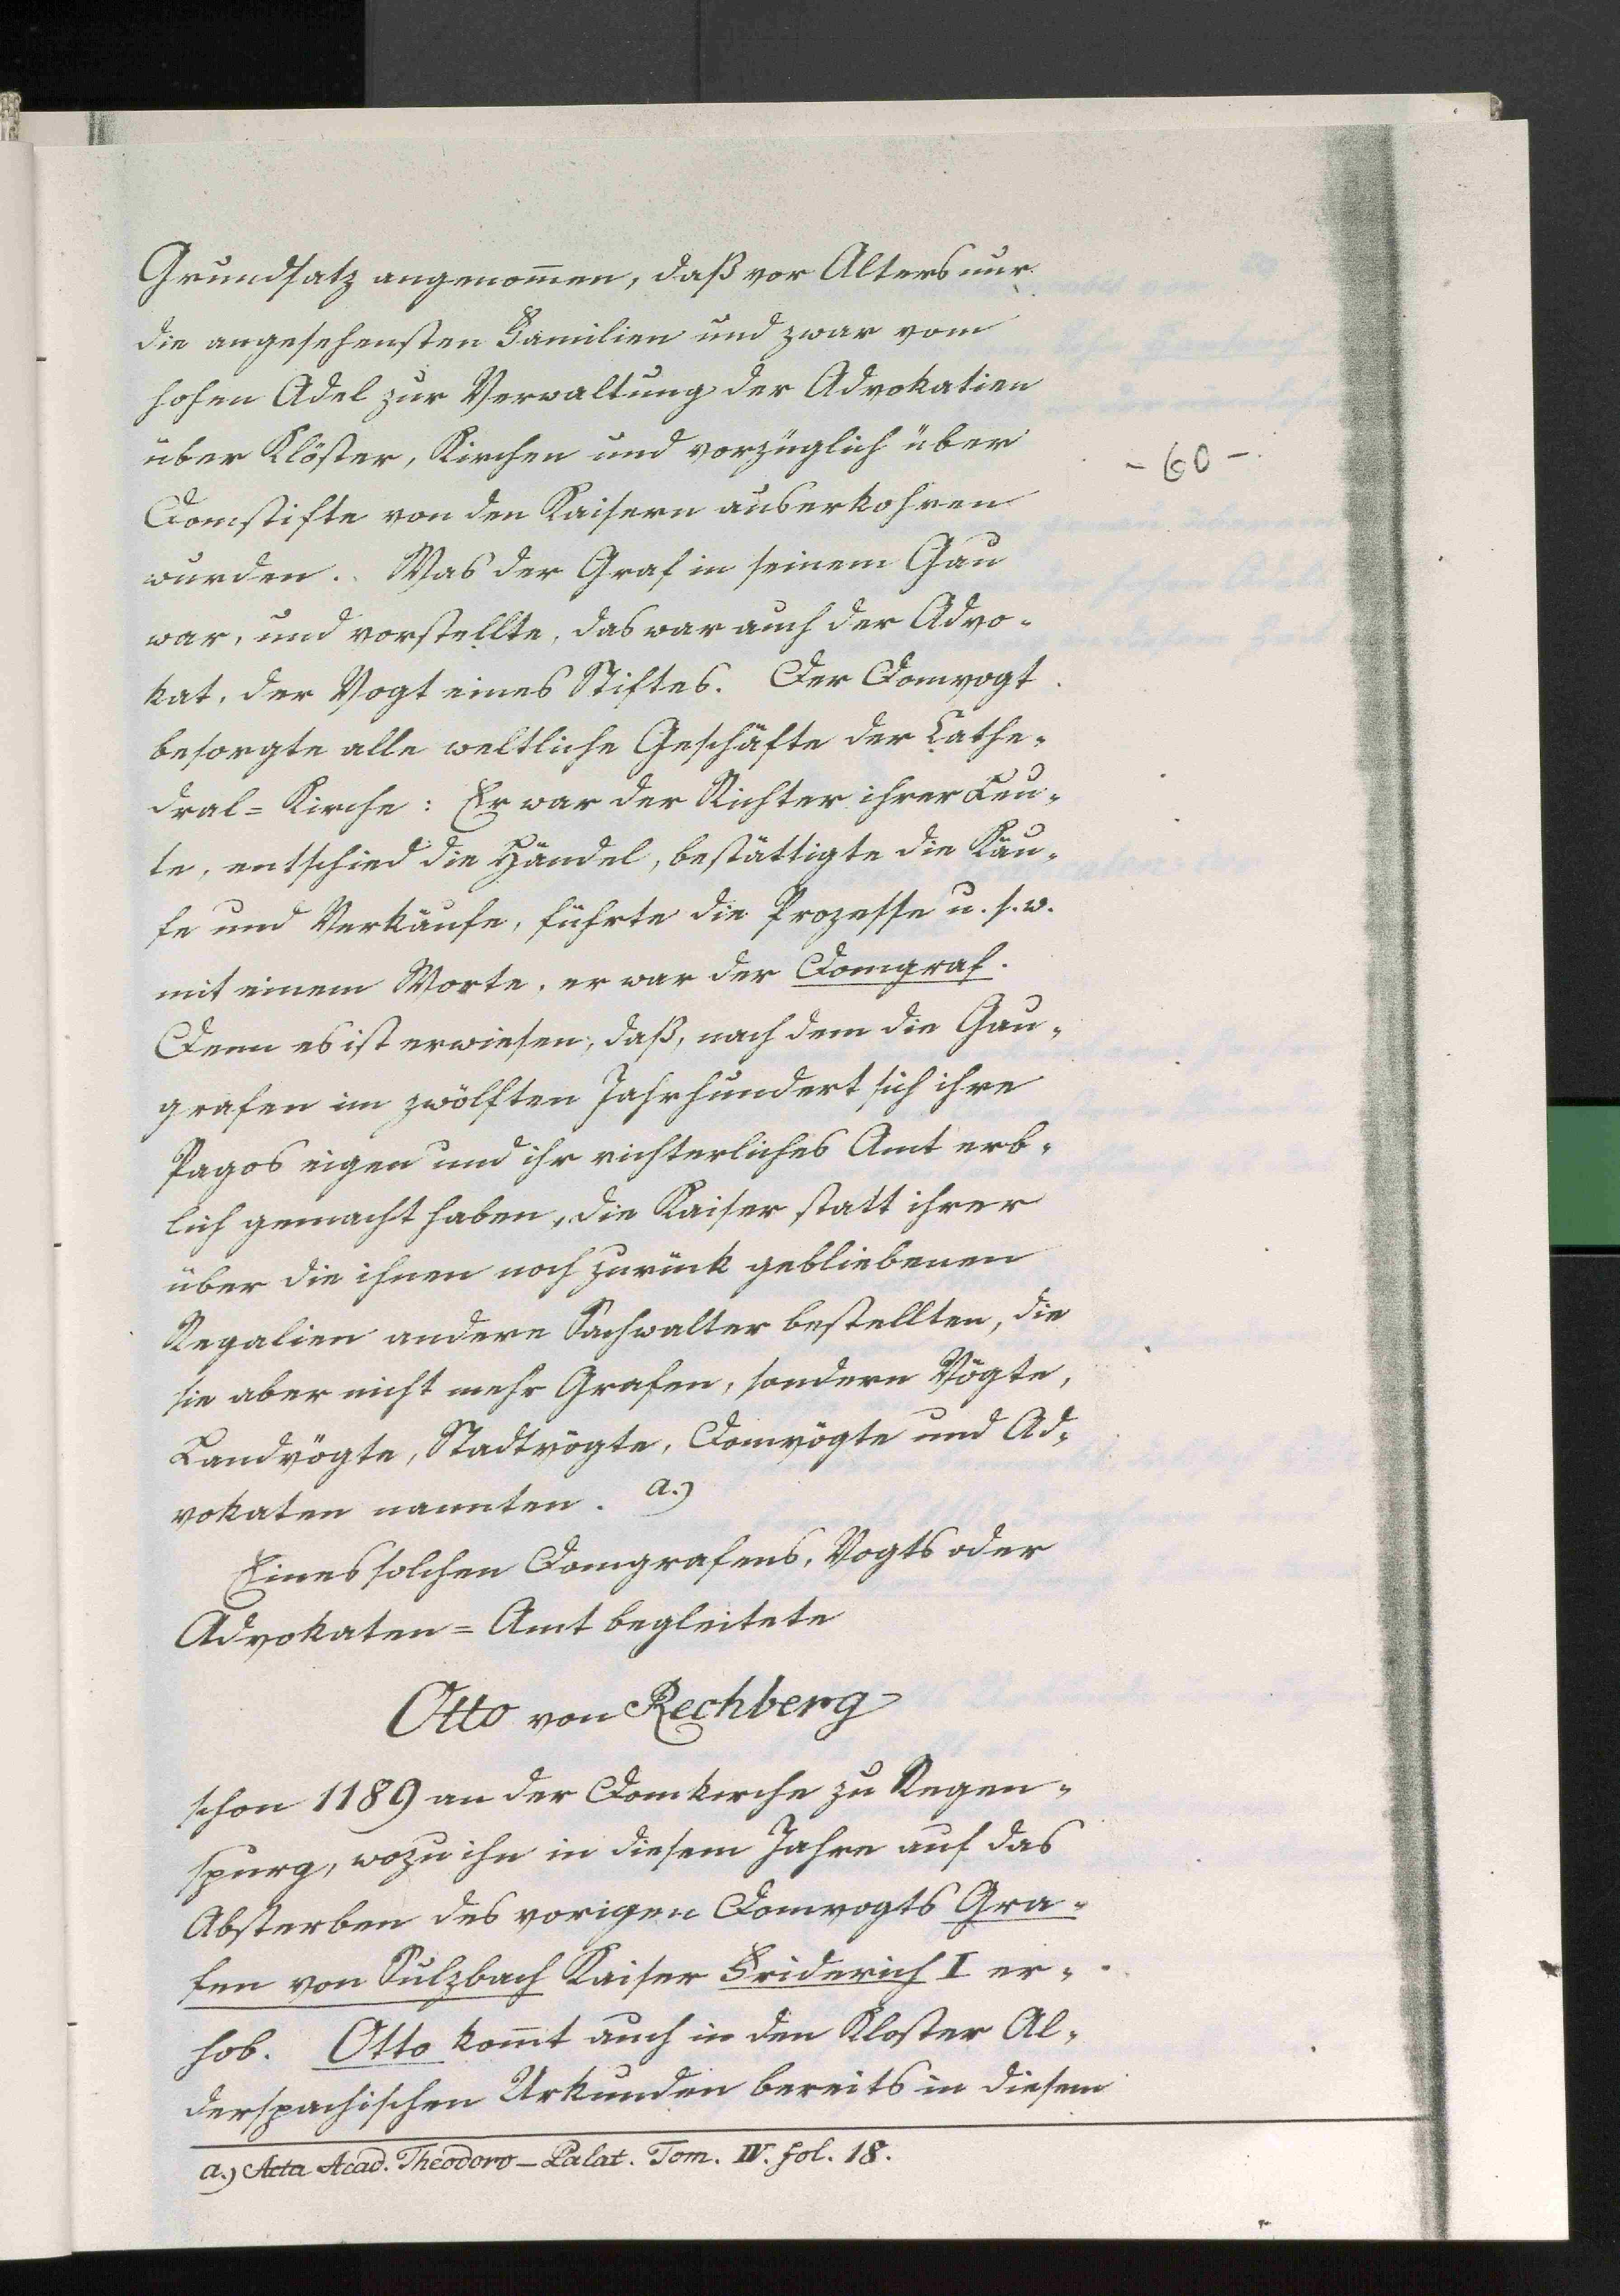 Grundsatz angenom̄en, daß vor Alters nur
die angesehensten Familien und zwar vom
hohen Adel zur Verwaltung der Advokatien
über Klöster, Kirchen und vorzüglich über
Domstifte von den Kaisern auserkohren
wurden. Was der Graf in seinem Gau
war, und vorstellte, das war auch der Advo-
kat, der Vogt eines Stiftes. Der Domvogt
besorgte alle weltliche Geschäfte der Cathe-
dral= Kirche: Er war der Richter ihrer Leu-
te, entschied die Händel, bestättigte die Käu-
fe und Verkäufe, führte die Prozesse u. s. w.
mit einem Worte, er war der Domgraf.
Denn es ist erwiesen, daß, nach dem die Gau-
grafen im zwölften Jahrhundert sich ihre
Pagos eigen und ihr richterliches Amt erb-
lich gemacht haben, die Kaiser statt ihrer
über die ihnen noch zurück gebliebenen
Regalien andere Sachwalter bestellten, die
sie aber nicht mehr Grafen, sondern Vögte,
Landvögte, Stadtvögte, Domvögte und Ad-
vokaten nannten. a.)
Eines solchen Domgrafens, Vogts oder
Advokaten= Amt begleitete
Otto von Rechberg
schon 1189 an der Domkirche zu Regen-
spurg, wozu ihn in diesem Jahre auf das
Absterben des vorigen Domvogts Gra-
fen von Sulzbach Kaiser Friderich I er-
hob. Otto kom̄t auch in den Kloster Al-
derspachischen Urkunden bereits in diesem
a.) Acta Acad. Theodoro-Palat. Tom. IV. fol. 18.
- 60 -